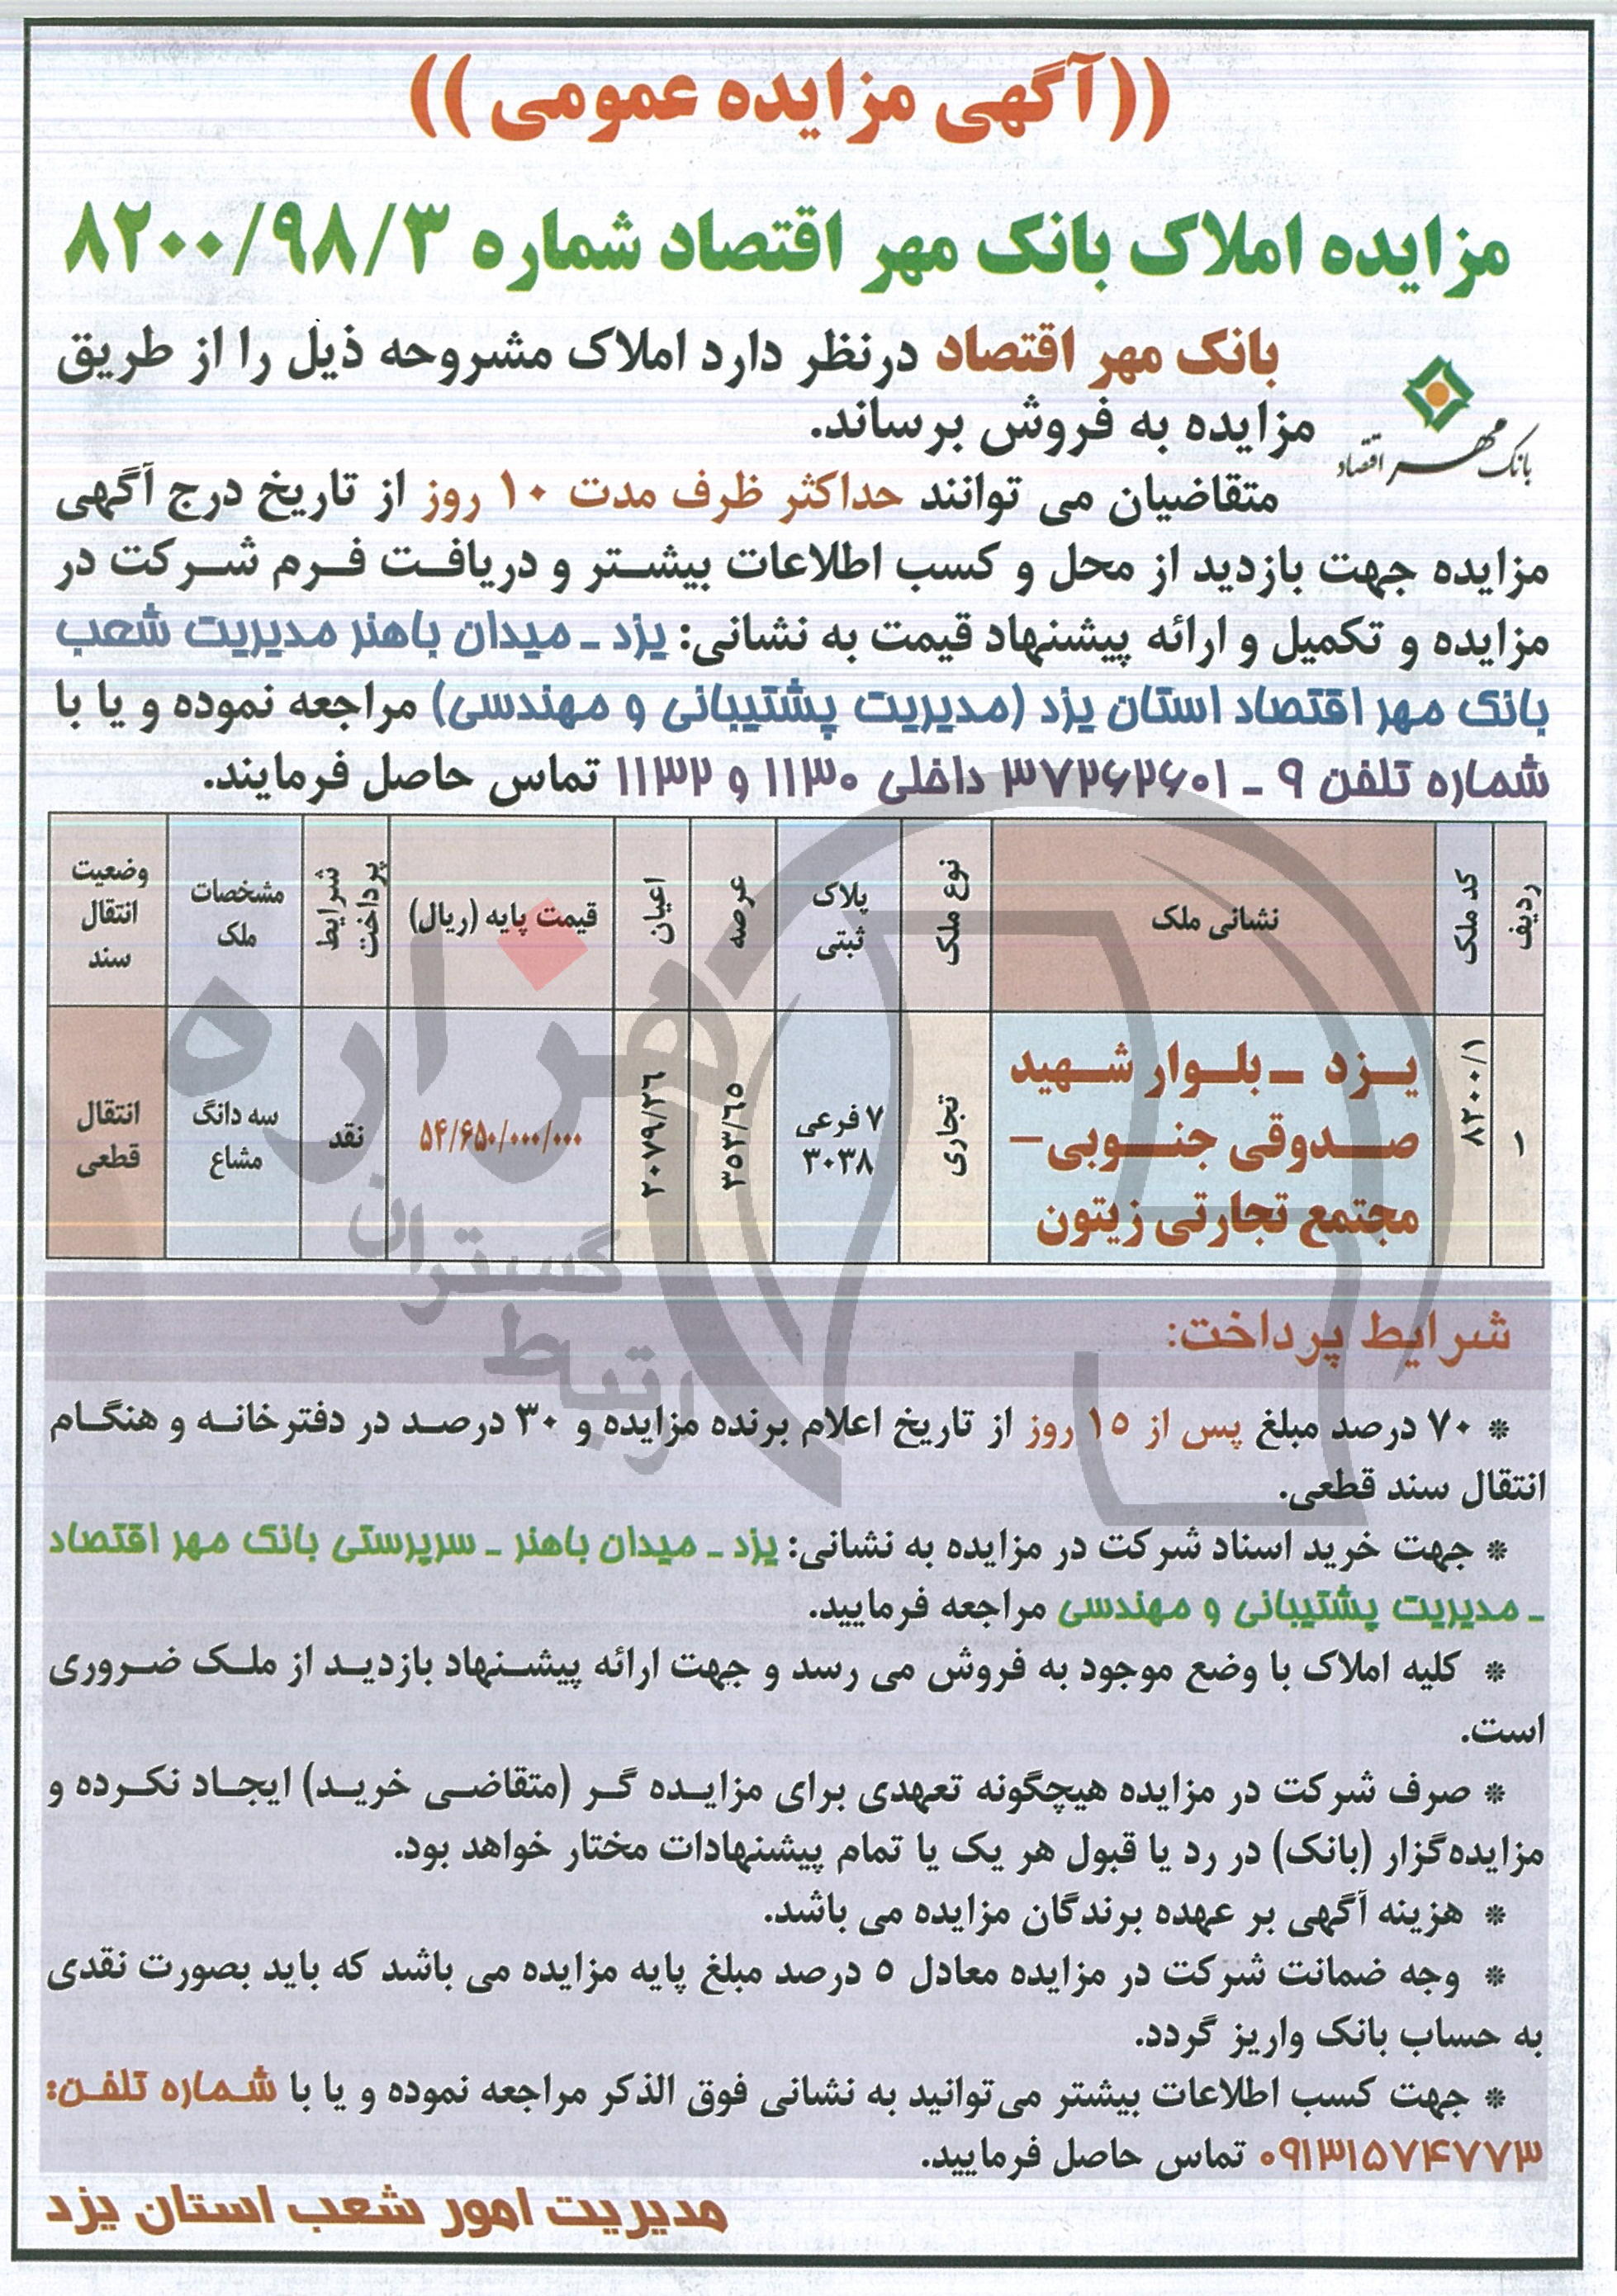 ((آگهی مزایده عمومی))
مزایده املاک بانک مهر اقتصاد شماره ۸۲۰۰/۹۸/۳
بانک مهر اقتصاد درنظر دارد املاک مشروحه ذیل را از طریق
مزایده به فروش برساند.
بانک مهر اقتصاد
متقاضیان می توانند حداکثر ظرف مدت ۱۰ روز از تاریخ درج آگهی
مزایده جهت بازدید از محل و کسب اطلاعات بیشتر و دریافت فرم شرکت در
مزایده و تکمیل و ارائه پیشنهاد قیمت به نشانی: یزد ـ میدان باهنر مدیریت شعب
بانک مهر اقتصاد استان یزد (مدیریت پشتیبانی و مهندسی) مراجعه نموده و یا با
شماره تلفن ۹ ـ ۳۷۲۶۲۶۰۱ داخلی ۱۱۳۰ و ۱۱۳۲ تماس حاصل فرمایند.
ردیف
کد ملک
نشانی ملک
نوع ملک
پلاک
ثبتی
عرصه
اعیان
قیمت پایه (ریال)
شرایط
پرداخت
مشخصات
ملک
وضعیت
انتقال
سند
۱
۸۲۰۰/۱
یزد ـ بلوار شهید
صدوقی جنوبی–
مجتمع تجارتی زیتون
تجاری
۷ فرعی
۳۰۳۸
۳۵۳/۶۵
۲۰۷۹/۲۶
۵۴/۶۵۰/۰۰۰/۰۰۰
نقد
سه دانگ
مشاع
انتقال
قطعی
هزاره
گستران
ارتباط
شرایط پرداخت:
* ۷۰ درصد مبلغ پس از ۱۵ روز از تاریخ اعلام برنده مزایده و ۳۰ درصد در دفترخانه و هنگام
انتقال سند قطعی.
* جهت خرید اسناد شرکت در مزایده به نشانی: یزد ـ میدان باهنر ـ سرپرستی بانک مهر اقتصاد
ـ مدیریت پشتیبانی و مهندسی مراجعه فرمایید.
* کلیه املاک با وضع موجود به فروش می رسد و جهت ارائه پیشنهاد بازدید از ملک ضروری
است.
* صرف شرکت در مزایده هیچگونه تعهدی برای مزایده گر (متقاضی خرید) ایجاد نکرده و
مزایده‌گزار (بانک) در رد یا قبول هر یک یا تمام پیشنهادات مختار خواهد بود.
* هزینه آگهی بر عهده برندگان مزایده می باشد.
* وجه ضمانت شرکت در مزایده معادل ۵ درصد مبلغ پایه مزایده می باشد که باید بصورت نقدی
به حساب بانک واریز گردد.
* جهت کسب اطلاعات بیشتر می‌توانید به نشانی فوق الذکر مراجعه نموده و یا با شماره تلفن:
۰۹۱۳۱۵۷۴۷۷۳ تماس حاصل فرمایید.
مدیریت امور شعب استان یزد